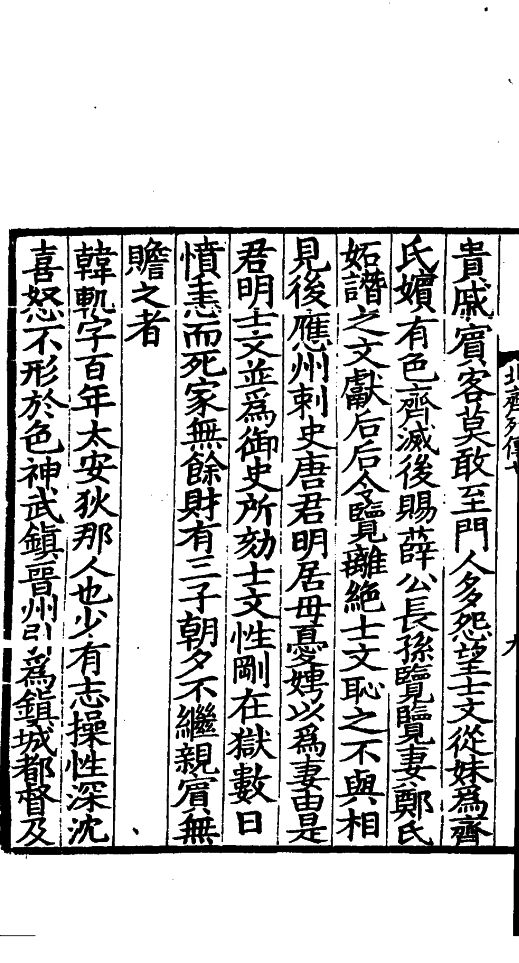 北齊列傳
九
貴戚賓客莫敢至門人多怨望士文從妹爲齊
氏嬪有色齊滅後賜薛公長孫覽覽妻鄭氏
妬譖之文獻后后令覽離絶士文恥之不與相
見後應州刺史唐君明居母憂娉以爲妻由是
君明士文並爲御史所劾士文性剛在獄數日
憤恚而死家無餘財有三子朝夕不繼親賓無
贍之者
韓軌字百年太安狄那人也少有志操性深沈
喜怒不形於色神武鎮晉州引爲鎮城都督及